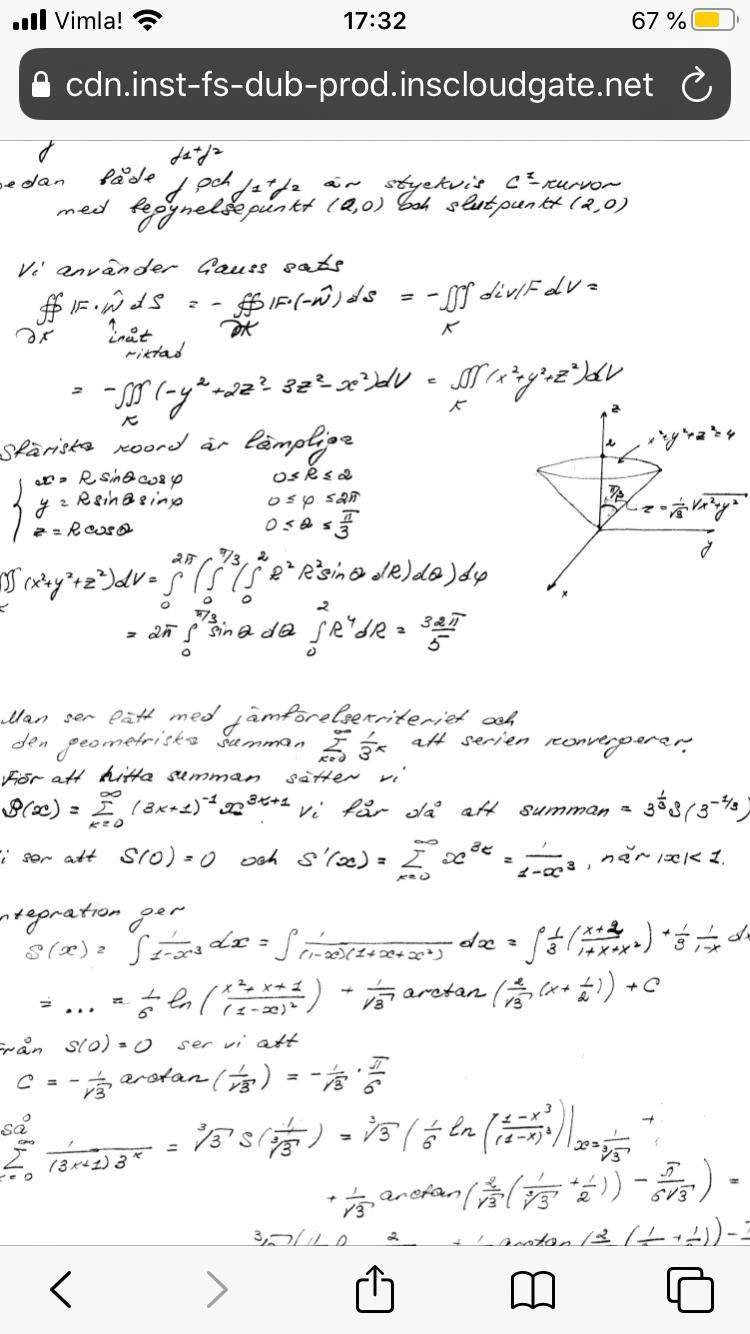 Vimla! 17:32 67 %
cdn.inst-fs-dub-prod.inscloudgate.net
γ γ1+γ2
edan både γ och γ1+γ2 är styckvis C¹-kurvor
med begynelsepunkt (0,0) och slutpunkt (2,0)
Vi använder Gauss sats
∯ IF·N̂ dS = - ∯ IF·(-N̂) dS = -∭ div IF dV =
∂K ∂K K
inåt
riktad
= -∭ (-y²+2z²-3z²-x²)dV = ∭ (x²+y²+z²)dV
K K
Sfäriska koord är lämpliga
x = R sinθ cosφ 0≤R≤2
y = R sinθ sinφ 0≤φ≤2π
z = R cosθ 0≤θ≤π/3
z
2
x²+y²+z²=4
π/3
z = 1/√3 √x²+y²
y
x
∭ (x²+y²+z²)dV = ∫₀^2π (∫₀^π/3 (∫₀^2 R² R² sinθ dR) dθ) dφ
= 2π ∫₀^π/3 sinθ dθ ∫₀^2 R⁴ dR = 32π/5
Man ser lätt med jämförelsekriteriet och
den geometriska summan ∑_{k=0}^∞ 1/3^k att serien konvergerar.
För att hitta summan sätter vi
S(x) = ∑_{k=0}^∞ (3k+1)^-1 x^{3k+1} vi får då att summan = 3^{1/3} S(3^{-1/3})
i ser att S(0)=0 och S'(x) = ∑_{k=0}^∞ x^{3k} = 1/(1-x³), när |x|<1.
ntegration ger
S(x) = ∫ 1/(1-x³) dx = ∫ 1/((1-x)(1+x+x²)) dx = ∫ 1/3 ((x+2)/(1+x+x²)) + 1/3 1/(1-x) d
= ... = 1/6 ln ((x²+x+1)/(1-x)²) + 1/√3 arctan (2/√3 (x+1/2)) + C
Från S(0)=0 ser vi att
C = -1/√3 arctan (1/√3) = -1/√3 · π/6
så
∑_{k=0}^∞ 1/((3k+1)3^k) = ³√3 S(1/³√3) = ³√3 (1/6 ln ((1-x³)/(1-x)³)|_{x=1/³√3} +
+ 1/√3 arctan (2/√3 (1/³√3 + 1/2)) - π/(6√3)) =